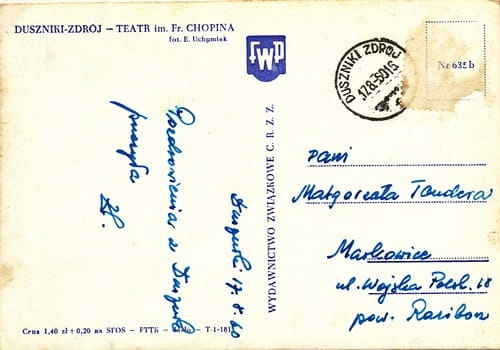 DUSZNIKI-ZDRÓJ — TEATR im. Fr. CHOPINA
fot. E. Uchymiak
FWP
DUSZNIKI ZDRÓJ
17.8.60 16
Nr 635 b
Pozdrowienia z Dusznik
przesyła
H.
Duszniki 17.8.60
WYDAWNICTWO ZWIĄZKOWE C. R. Z. Z.
Pani
Małgorzata Tondera
Markowice
ul. Wojska Polsk. 18
pow. Racibor
Cena 1,40 zł + 0,20 na SFOS — PTTK — T-1-181